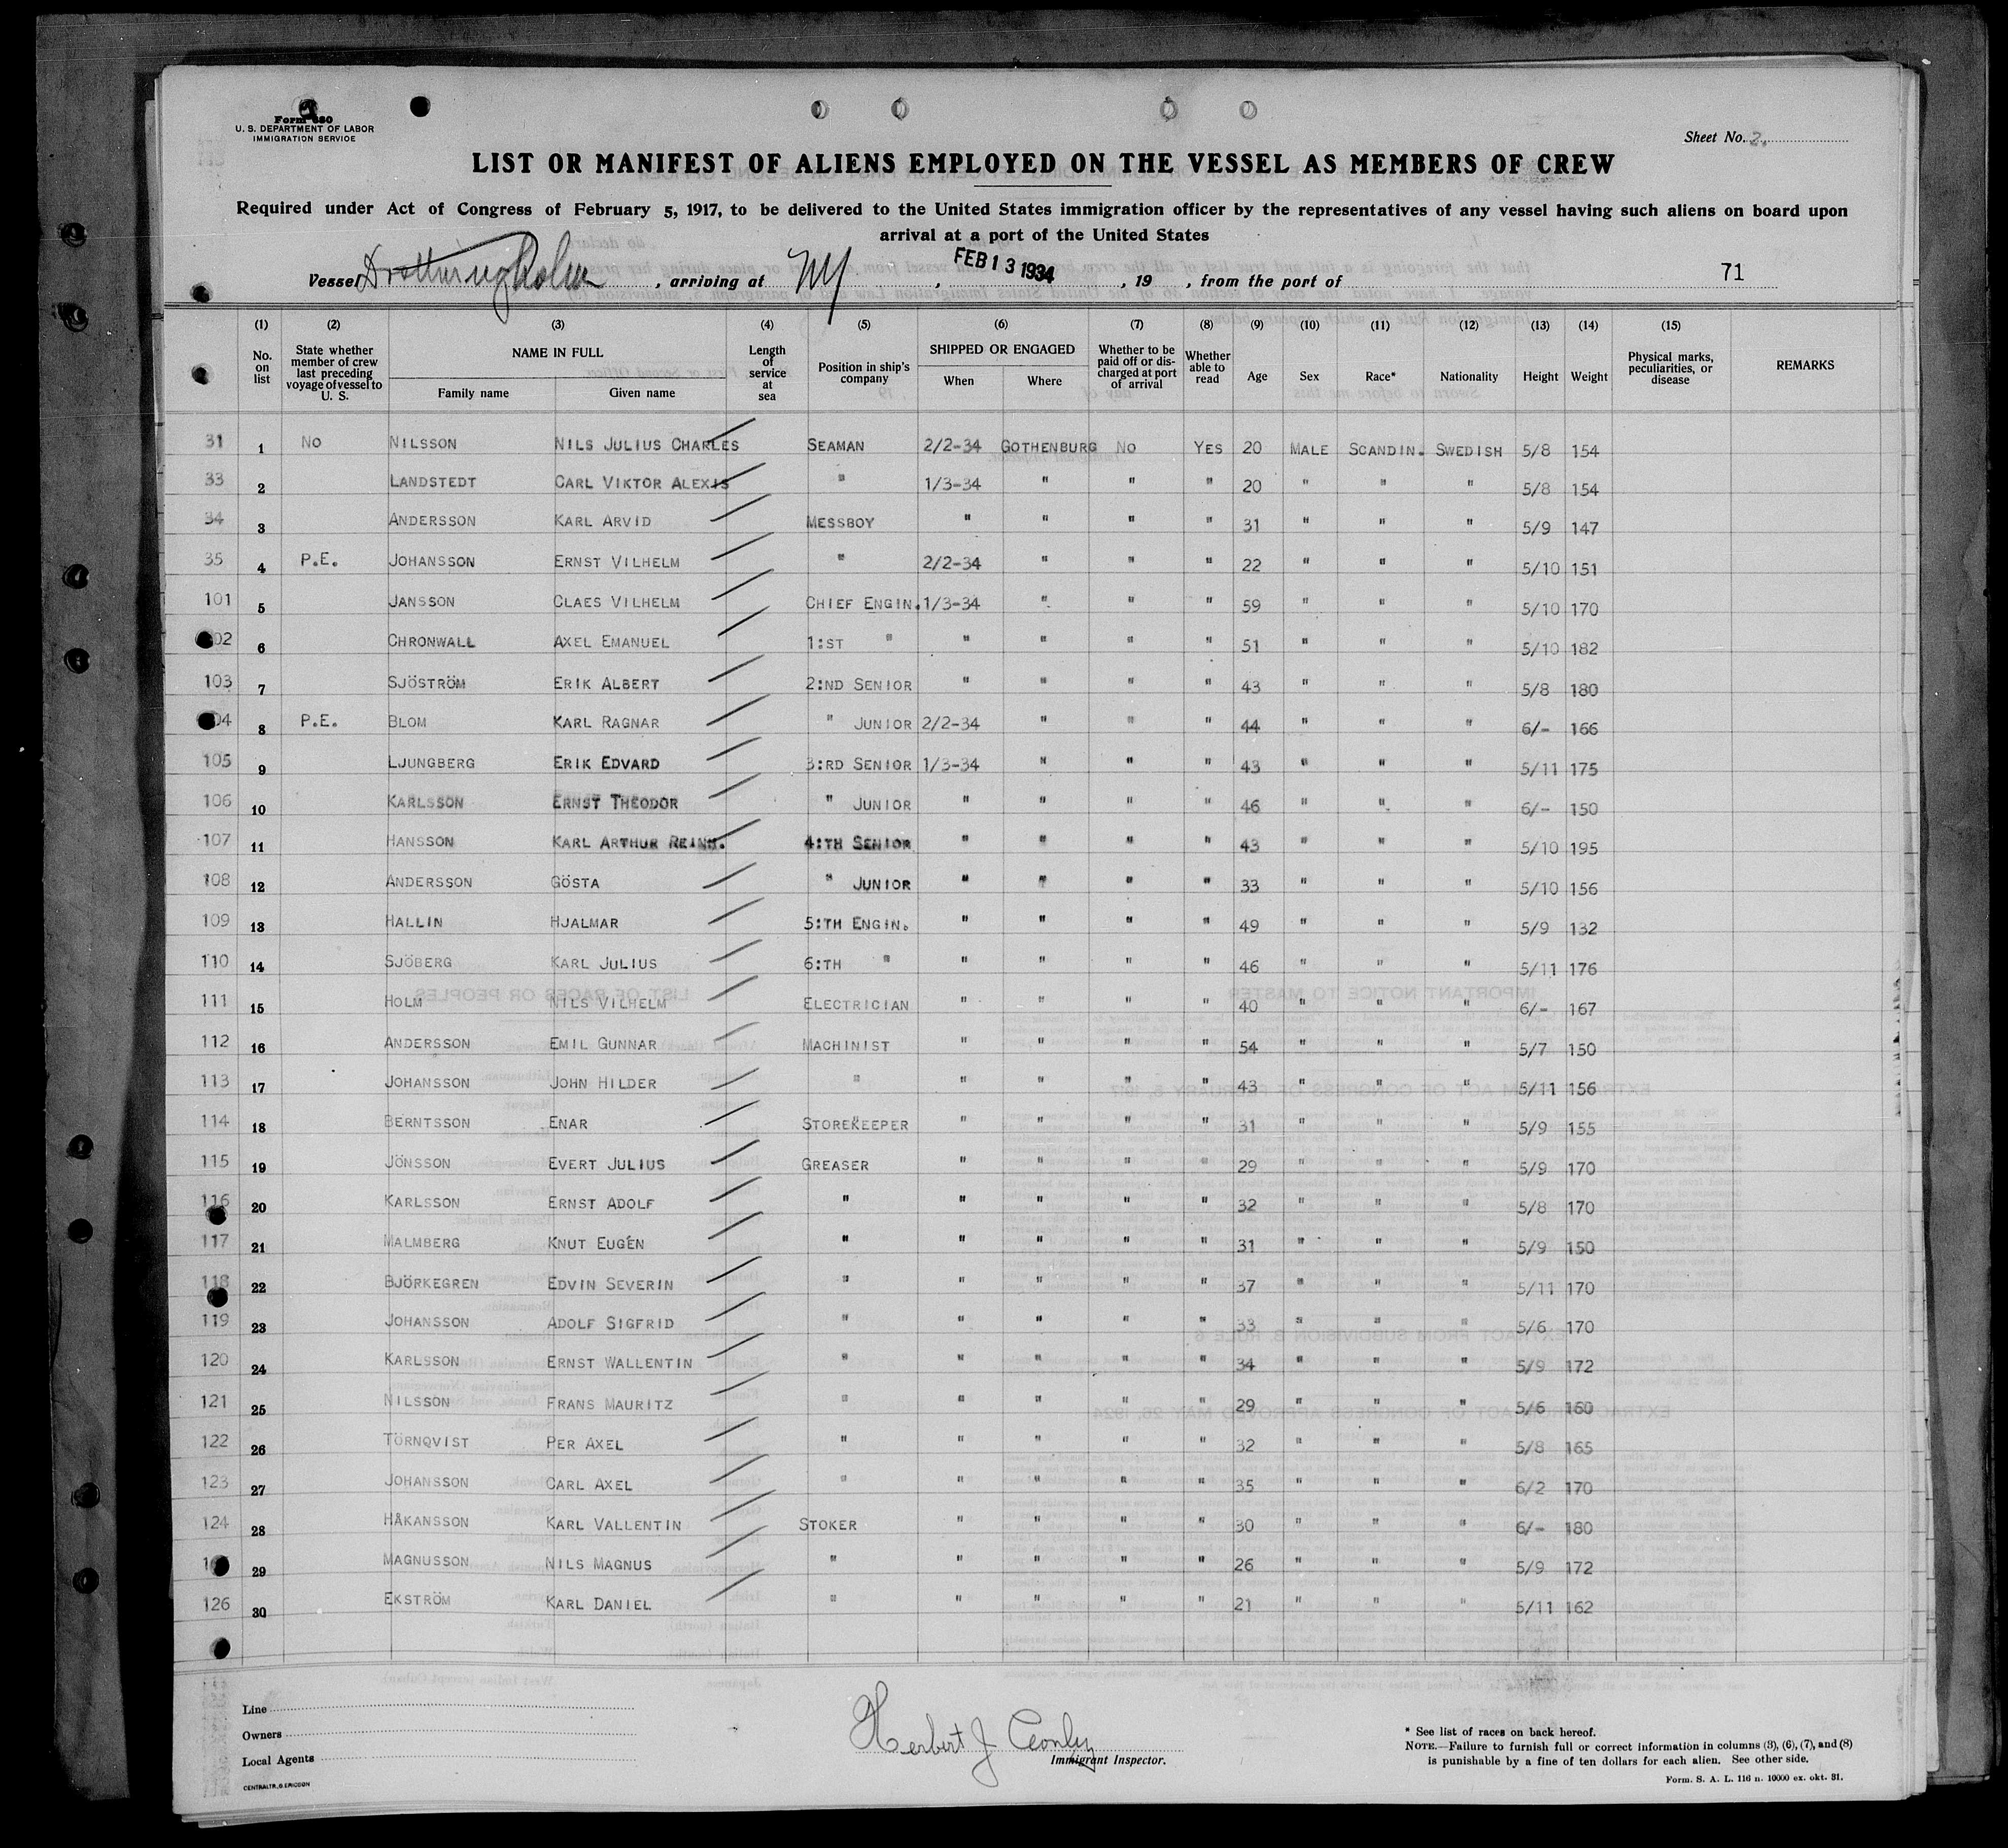 Form 680
U. S. DEPARTMENT OF LABOR
IMMIGRATION SERVICE
Sheet No. 2.
LIST OR MANIFEST OF ALIENS EMPLOYED ON THE VESSEL AS MEMBERS OF CREW
Required under Act of Congress of February 5, 1917, to be delivered to the United States immigration officer by the representatives of any vessel having such aliens on board upon
arrival at a port of the United States
Vessel Drottningholm, arriving at NY, FEB 13 1934, 19 , from the port of 71
(1) (2) (3) (4) (5) (6) (7) (8) (9) (10) (11) (12) (13) (14) (15)
No. on list State whether member of crew last preceding voyage of vessel to U. S. NAME IN FULL Family name Given name Length of service at sea Position in ship's company SHIPPED OR ENGAGED When Where Whether to be paid off or discharged at port of arrival Whether able to read Age Sex Race* Nationality Height Weight Physical marks, peculiarities, or disease REMARKS
31 1 NO NILSSON NILS JULIUS CHARLES SEAMAN 2/2-34 GOTHENBURG NO YES 20 MALE SCANDIN. SWEDISH 5/8 154
33 2 LANDSTEDT CARL VIKTOR ALEXIS " 1/3-34 " " " 20 " " " 5/8 154
34 3 ANDERSSON KARL ARVID MESSBOY " " " " 31 " " " 5/9 147
35 4 P.E. JOHANSSON ERNST VILHELM " 2/2-34 " " " 22 " " " 5/10 151
101 5 JANSSON CLAES VILHELM CHIEF ENGIN. 1/3-34 " " " 59 " " " 5/10 170
02 6 CHRONWALL AXEL EMANUEL 1:ST " " " " " 51 " " " 5/10 182
103 7 SJÖSTRÖM ERIK ALBERT 2:ND SENIOR " " " " 43 " " " 5/8 180
04 8 P.E. BLOM KARL RAGNAR " JUNIOR 2/2-34 " " " 44 " " " 6/- 166
105 9 LJUNGBERG ERIK EDVARD 3:RD SENIOR 1/3-34 " " " 43 " " " 5/11 175
106 10 KARLSSON ERNST THEODOR " JUNIOR " " " " 46 " " " 6/- 150
107 11 HANSSON KARL ARTHUR REINH. 4:TH SENIOR " " " " 43 " " " 5/10 195
108 12 ANDERSSON GÖSTA " JUNIOR " " " " 33 " " " 5/10 156
109 13 HALLIN HJALMAR 5:TH ENGIN. " " " " 49 " " " 5/9 132
110 14 SJÖBERG KARL JULIUS 6:TH " " " " " 46 " " " 5/11 176
111 15 HOLM NILS VILHELM ELECTRICIAN " " " " 40 " " " 6/- 167
112 16 ANDERSSON EMIL GUNNAR MACHINIST " " " " 54 " " " 5/7 150
113 17 JOHANSSON JOHN HILDER " " " " " 43 " " " 5/11 156
114 18 BERNTSSON ENAR STOREKEEPER " " " " 31 " " " 5/9 155
115 19 JÖNSSON EVERT JULIUS GREASER " " " " 29 " " " 5/9 170
116 20 KARLSSON ERNST ADOLF " " " " " 32 " " " 5/8 170
117 21 MALMBERG KNUT EUGÉN " " " " " 31 " " " 5/9 150
118 22 BJÖRKEGREN EDVIN SEVERIN " " " " " 37 " " " 5/11 170
119 23 JOHANSSON ADOLF SIGFRID " " " " " 33 " " " 5/6 170
120 24 KARLSSON ERNST WALLENTIN " " " " " 34 " " " 5/9 172
121 25 NILSSON FRANS MAURITZ " " " " " 29 " " " 5/6 160
122 26 TÖRNQVIST PER AXEL " " " " " 32 " " " 5/8 165
123 27 JOHANSSON CARL AXEL " " " " " 35 " " " 6/2 170
124 28 HÅKANSSON KARL VALLENTIN STOKER " " " " 30 " " " 6/- 180
29 MAGNUSSON NILS MAGNUS " " " " " 26 " " " 5/9 172
126 30 EKSTRÖM KARL DANIEL " " " " " 21 " " " 5/11 162
Line
Owners
Local Agents
CENTRALTR, G. ERICSON
Herbert J Conly
Immigrant Inspector.
* See list of races on back hereof.
NOTE.—Failure to furnish full or correct information in columns (3), (6), (7), and (8)
is punishable by a fine of ten dollars for each alien. See other side.
Form. S. A. L. 116 n. 10000 ex. okt. 31.